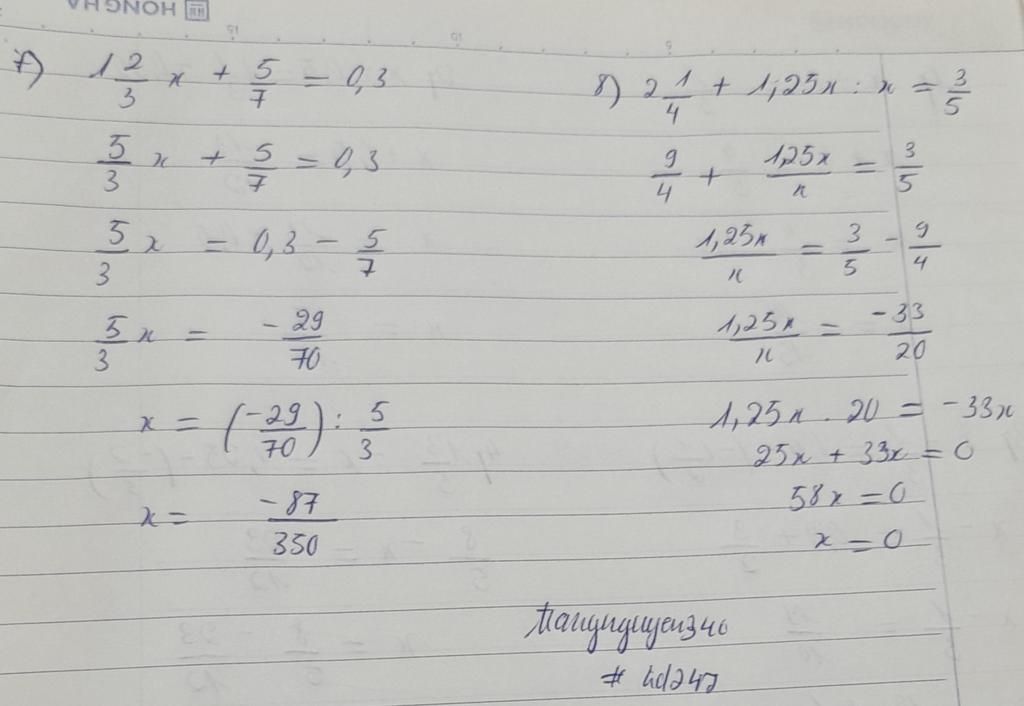 HONG HA
7) 1 2/3 x + 5/7 = 0,3
5/3 x + 5/7 = 0,3
5/3 x = 0,3 - 5/7
5/3 x = -29/70
x = (-29/70) : 5/3
x = -87/350
8) 2 1/4 + 1,25x : x = 3/5
9/4 + 1,25x/x = 3/5
1,25x/x = 3/5 - 9/4
1,25x/x = -33/20
1,25x . 20 = -33x
25x + 33x = 0
58x = 0
x = 0